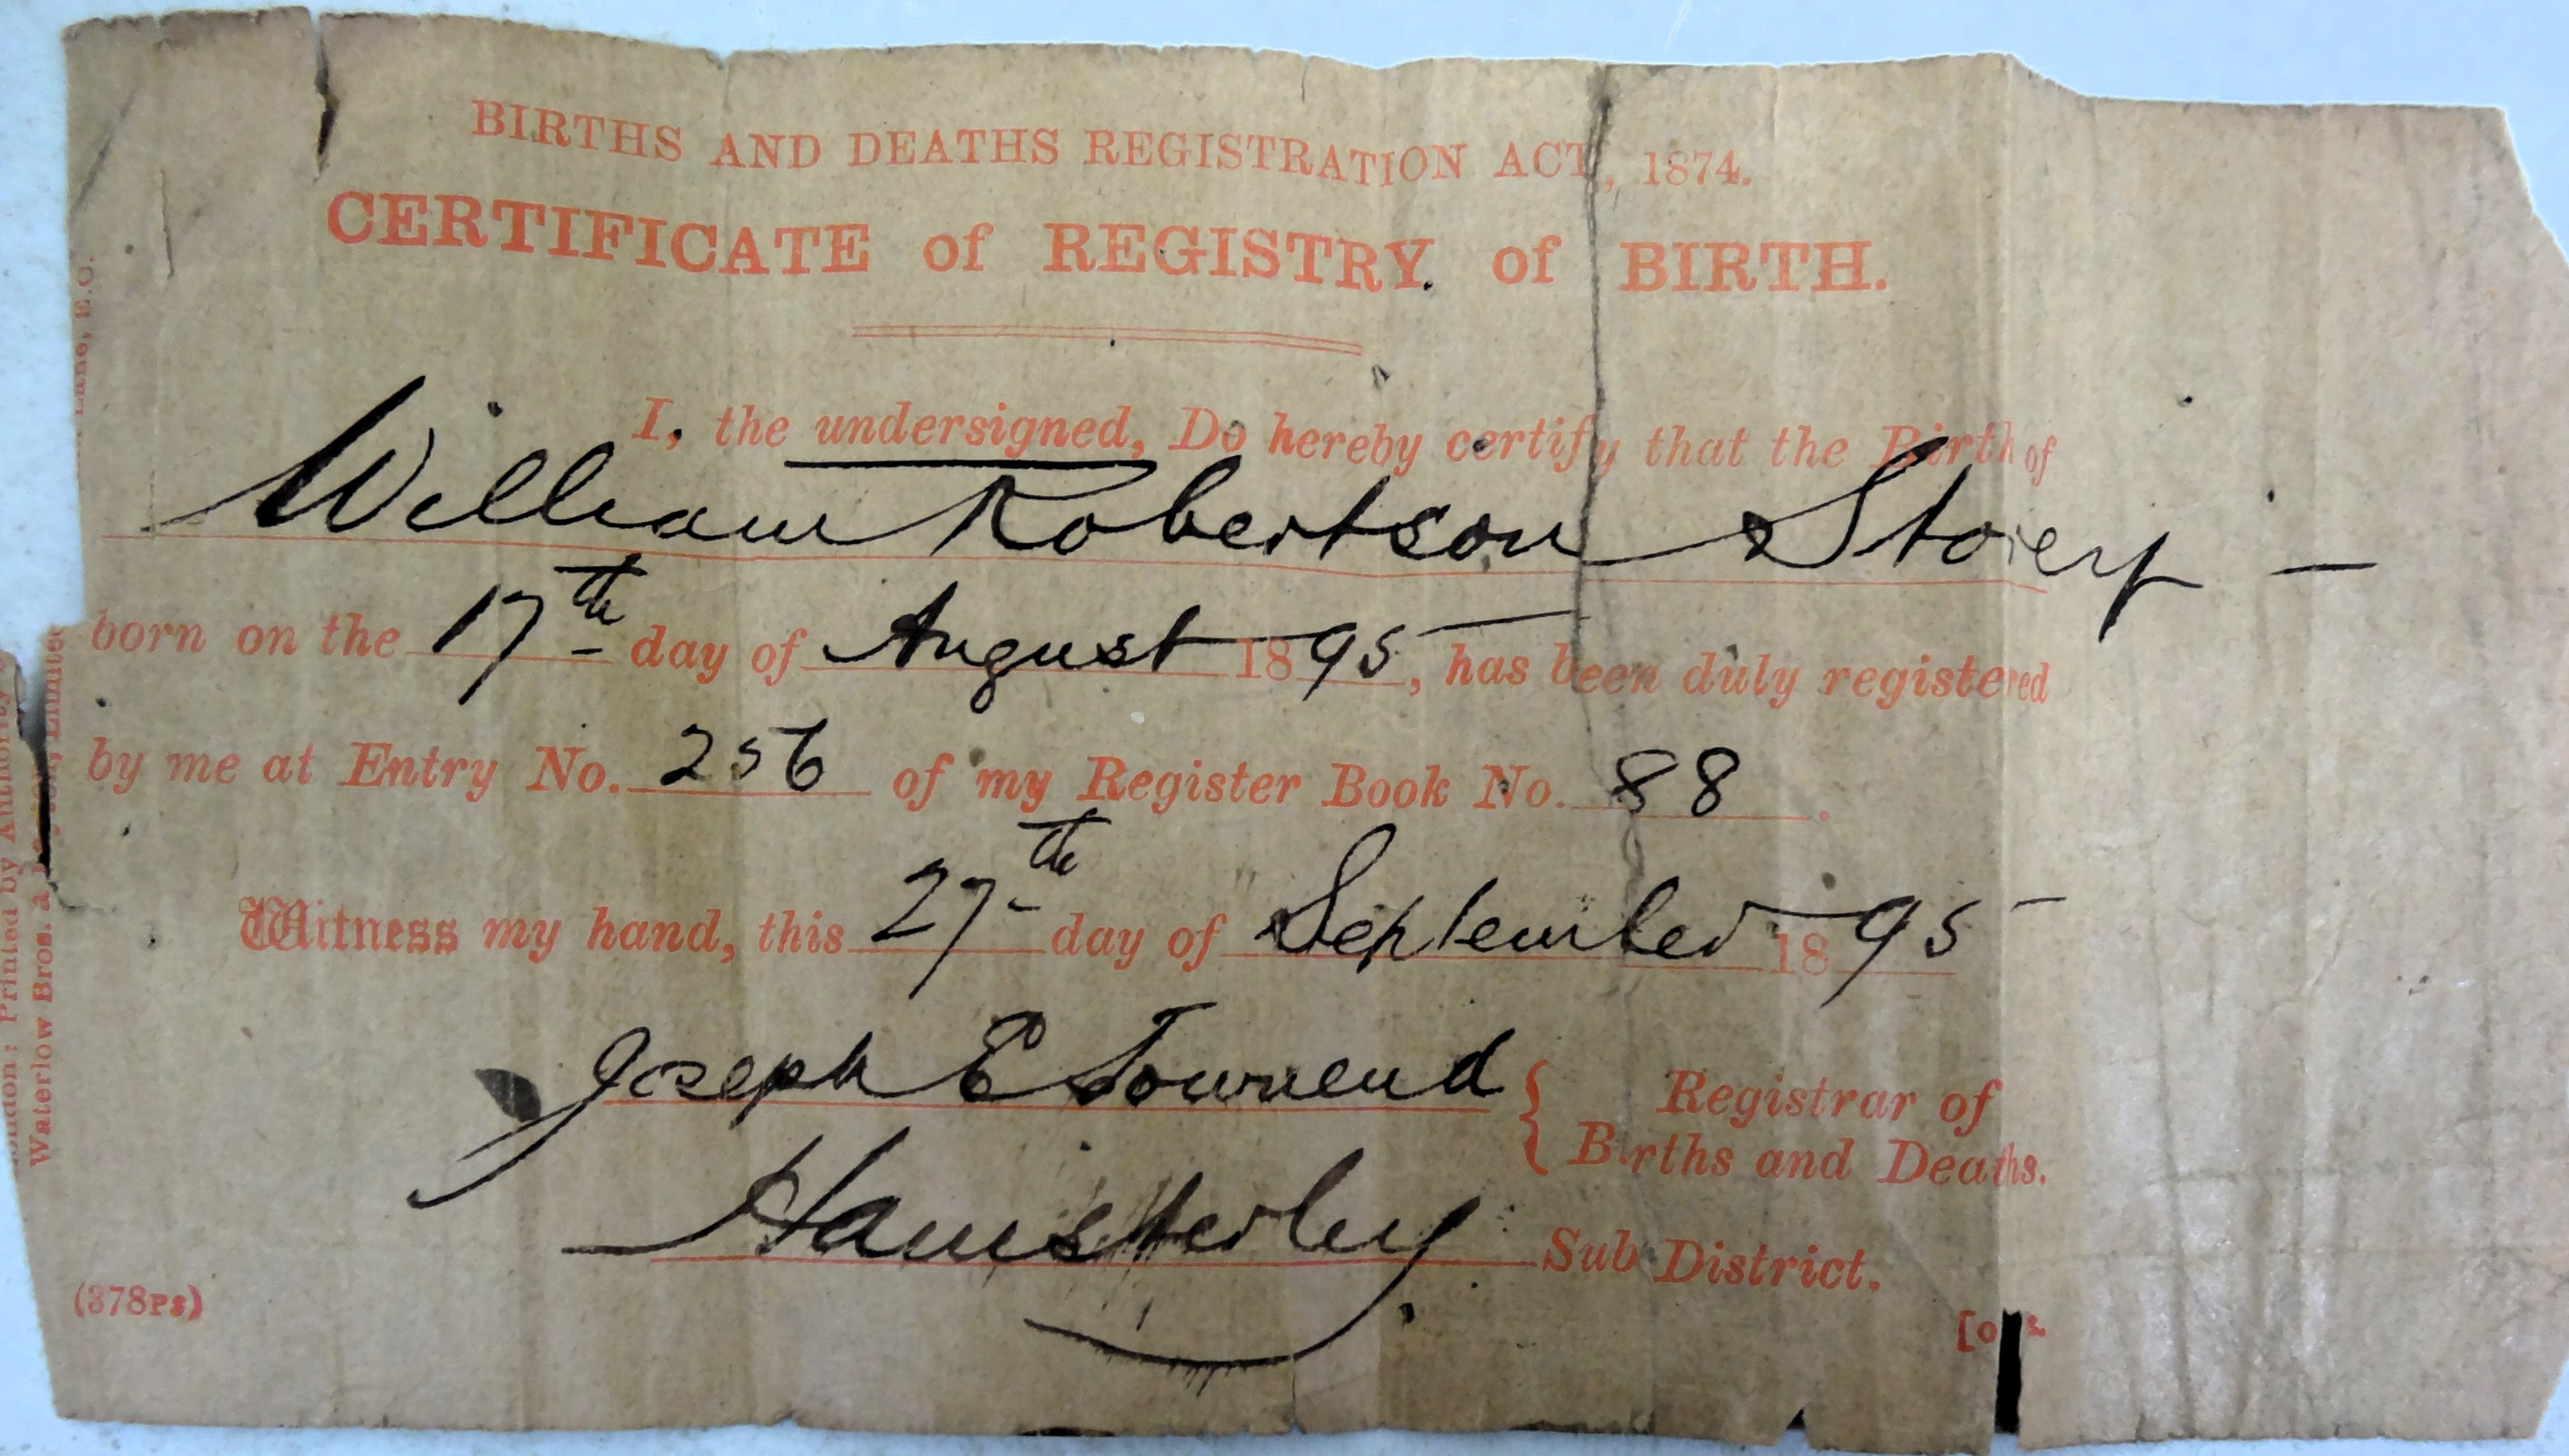 BIRTHS AND DEATHS REGISTRATION ACT, 1874.
CERTIFICATE of REGISTRY of BIRTH.
I, the undersigned, Do hereby certify that the Birth of
William Robertson Storey —
born on the 17th day of August 1895, has been duly registered
by me at Entry No. 256 of my Register Book No. 88.
Witness my hand, this 27th day of September 1895 —
Joseph E Townend { Registrar of
Births and Deaths.
Hamsterley Sub District.
(378PS)
London: Printed by Authority
Waterlow Bros. & Layton, Limited
Lane, E.C.